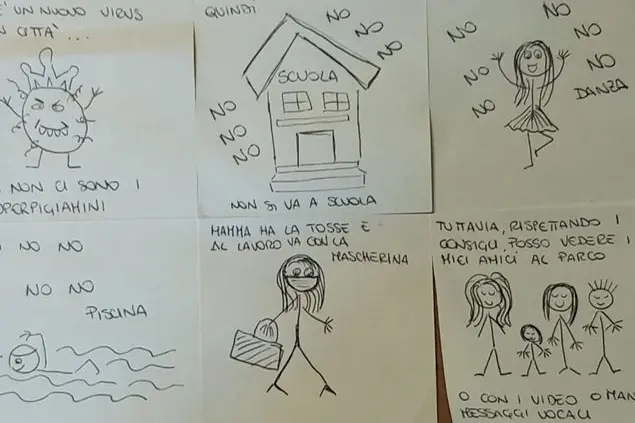 'È UN NUOVO VIRUS
N CITTÀ...
NON CI SONO I
UPERPIGIAMINI
QUINDI
NO
NO
NO
SCUOLA
NO
NO
NO
NON SI VA A SCUOLA
NO
NO
NO
NO
NO
NO
DANZA
NO NO
NO NO
PISCINA
MAMMA HA LA TOSSE E
AL LAVORO VA CON LA
MASCHERINA
TUTTAVIA, RISPETTANDO I
CONSIGLI, POSSO VEDERE I
MIEI AMICI AL PARCO
O CON I VIDEO O MAN
MESSAGGI VOCALI